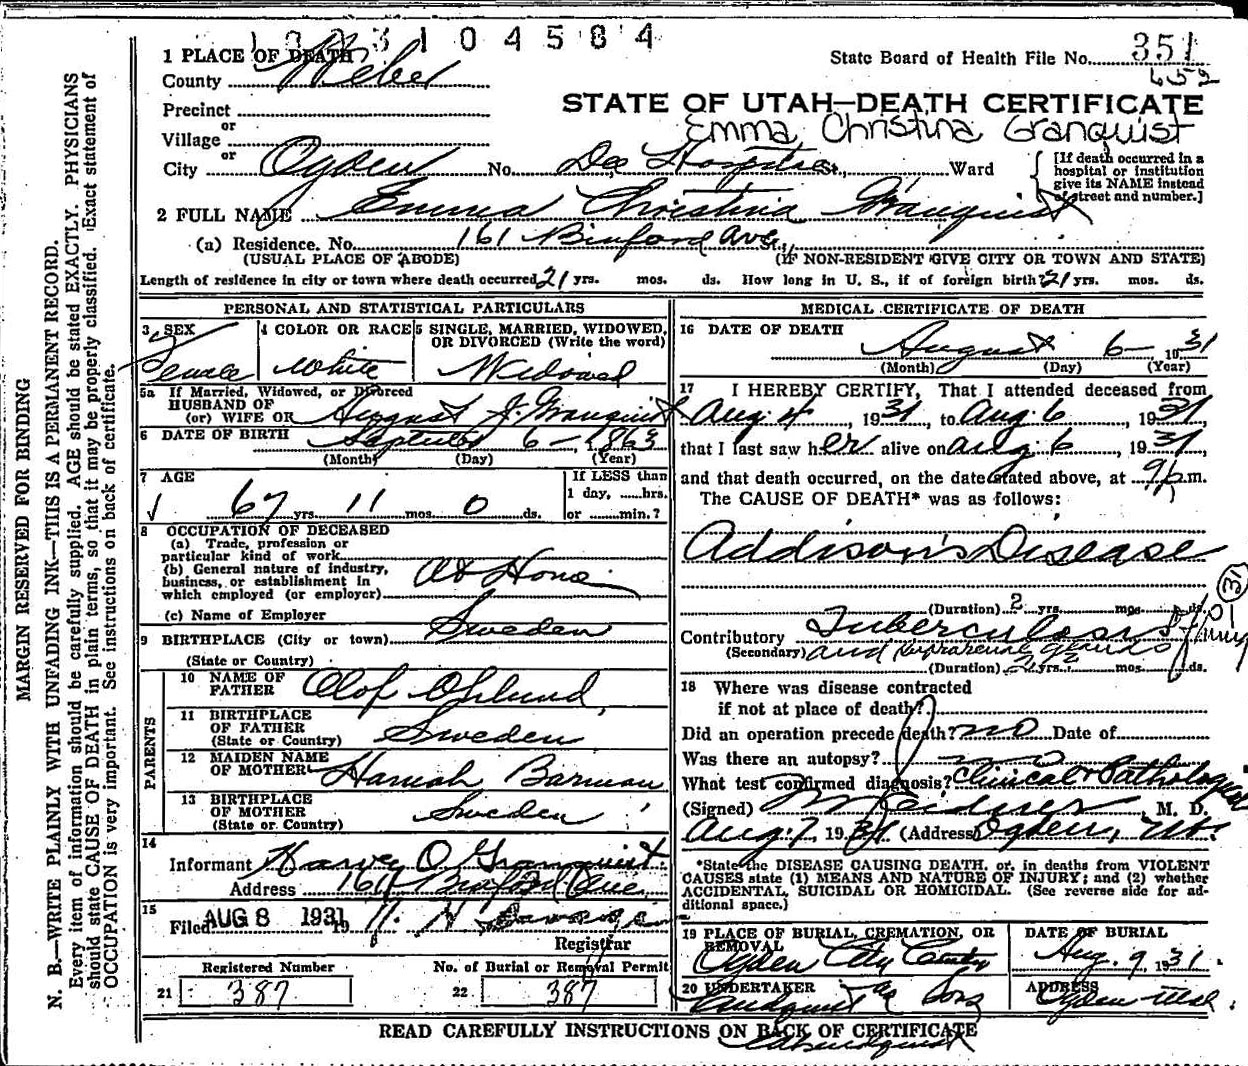 1 PLACE OF DEATH
193104584
State Board of Health File No. 351
652
County Weber
Precinct
or
Village
or
City Ogden No. Dee Hospital St., Ward
STATE OF UTAH—DEATH CERTIFICATE
Emma Christina Granquist
[If death occurred in a
hospital or institution
give its NAME instead
of street and number.]
2 FULL NAME Emma Christina Granquist
(a) Residence. No. 161 Binford Ave.,
(USUAL PLACE OF ABODE) (IF NON-RESIDENT GIVE CITY OR TOWN AND STATE)
Length of residence in city or town where death occurred 21 yrs. mos. ds. How long in U. S., if of foreign birth? 21 yrs. mos. ds.
PERSONAL AND STATISTICAL PARTICULARS
3 SEX
Female
4 COLOR OR RACE
White
5 SINGLE, MARRIED, WIDOWED,
OR DIVORCED (Write the word)
Widowed
5a If Married, Widowed, or Divorced
HUSBAND OF
(or) WIFE OR August J. Granquist
6 DATE OF BIRTH September 6— 1863
(Month) (Day) (Year)
7 AGE
67 yrs. 11 mos. 0 ds.
If LESS than
1 day, ......hrs.
or ......min.?
8 OCCUPATION OF DECEASED
(a) Trade, profession or
particular kind of work
(b) General nature of industry,
business, or establishment in
which employed (or employer) At Home
(c) Name of Employer
9 BIRTHPLACE (City or town) Sweden
(State or Country)
PARENTS
10 NAME OF
FATHER Olof Ohlund,
11 BIRTHPLACE
OF FATHER
(State or Country) Sweden
12 MAIDEN NAME
OF MOTHER Hannah Barman
13 BIRTHPLACE
OF MOTHER
(State or Country) Sweden
14
Informant Harvey O Granquist
Address 161 Binford Ave.
15
Filed AUG 8 1931 19
Registrar
Registered Number
21 387
No. of Burial or Removal Permit
22 387
MEDICAL CERTIFICATE OF DEATH
16 DATE OF DEATH
August 6— 1931
(Month) (Day) (Year)
17 I HEREBY CERTIFY, That I attended deceased from
Aug 4, 1931, to Aug. 6, 1931,
that I last saw her alive on Aug 6, 1931,
and that death occurred, on the date stated above, at 9 p.m.
The CAUSE OF DEATH* was as follows:
Addison's Disease
(Duration) 2 yrs. mos. ds.
Contributory Tuberculosis of
(Secondary) and suprarenal glands
(Duration) 2 yrs. mos. ds.
31
18 Where was disease contracted
if not at place of death?
Did an operation precede death? no Date of
Was there an autopsy? no
What test confirmed diagnosis? Clinical & Pathological
(Signed) M. D.
Aug. 7, 1931 (Address) Ogden, Ut.
*State the DISEASE CAUSING DEATH, or, in deaths from VIOLENT
CAUSES state (1) MEANS AND NATURE OF INJURY; and (2) whether
ACCIDENTAL, SUICIDAL OR HOMICIDAL. (See reverse side for ad-
ditional space.)
19 PLACE OF BURIAL, CREMATION, OR
REMOVAL
Ogden City
DATE OF BURIAL
Aug. 9, 1931.
20 UNDERTAKER
Lindquist & Sons
ADDRESS
Ogden Utah.
READ CAREFULLY INSTRUCTIONS ON BACK OF CERTIFICATE
MARGIN RESERVED FOR BINDING
N. B.—WRITE PLAINLY WITH UNFADING INK—THIS IS A PERMANENT RECORD.
Every item of information should be carefully supplied. AGE should be stated EXACTLY. PHYSICIANS
should state CAUSE OF DEATH in plain terms, so that it may be properly classified. Exact statement of
OCCUPATION is very important. See instructions on back of certificate.